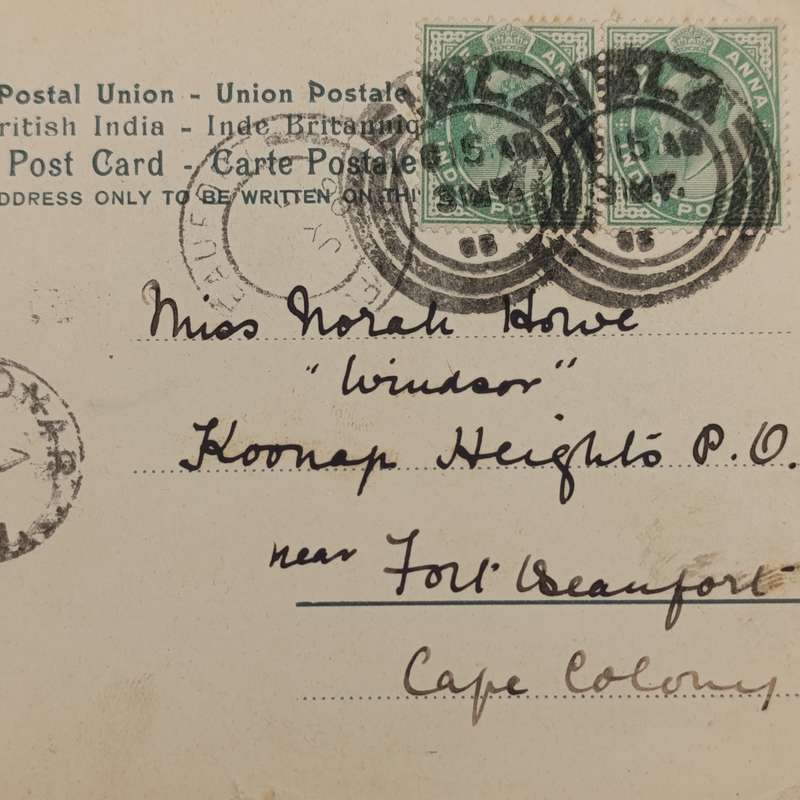 Postal Union - Union Postale
ritish India - Inde Britanniq
Post Card - Carte Postale
DDRESS ONLY TO BE WRITTEN ON THI
ANNA
ANNA
IND PO
INDIA PO
5.15.AM
3 MY.
05
5.15.AM
3 MY.
05
Miss Norah Howe
"Windsor"
Koonap Heights P.O.
near Fort Beaufort
Cape Colony